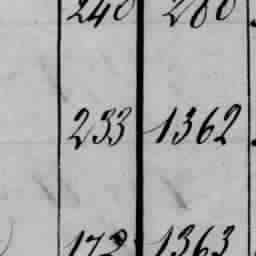 240 280
233 1362
173 1363